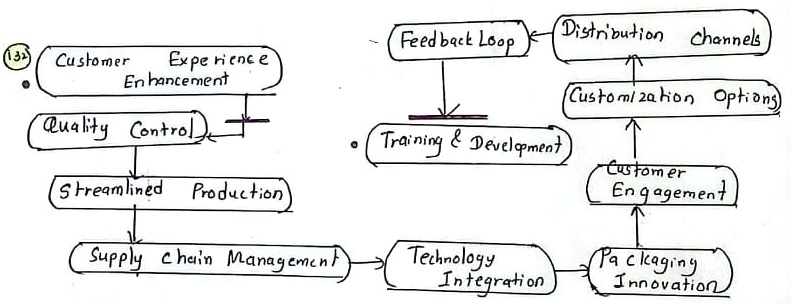 132
Customer Experience
Enhancement
Quality Control
Streamlined Production
Supply Chain Management
Technology
Integration
Packaging
Innovation
Customer
Engagement
Customization Options
Distribution Channels
Feedback Loop
Training & Development